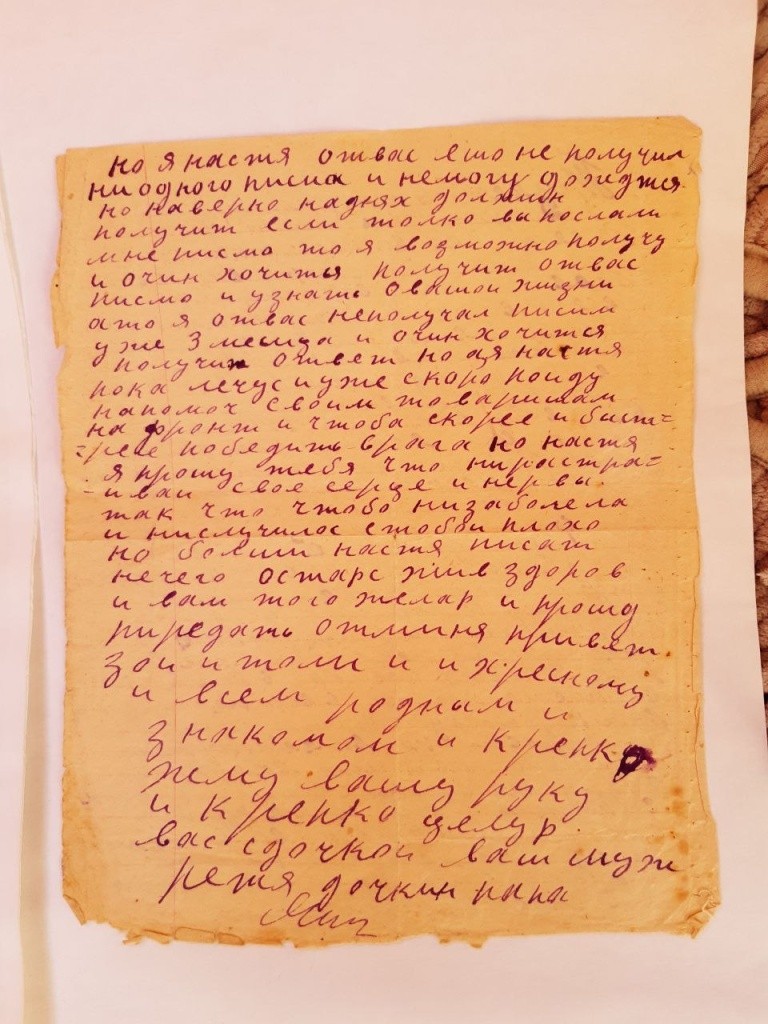 но я настя отвас ешо не получил
ни одного писма и немогу дождатся
но наверно наднях должин
получит если толко вы послали
мне писмо то я возможно получу
и очин хочитья получит отвас
писмо и узнать овашои жизни
ато я отвас неполучал писим
уже 3 месица и очин хочится
получит ответ но ая настя
пока лечус иуже скоро поиду
напомоч своим товарищам
на фронт и чтоба скорее и быст=
=рее победить врага но настя
я прошу тебя что нирастра=
-иваи свое серце и нервы
так что чтобо низаболела
и нислучилос стобои плохо
но болши настя писат
нечего остаюс жив здоров
и вам того желаю и прошу
пиредать отминя привет
зои и толи и и хресному
и всем родным и
знакомом и крепко
жму вашу руку
и крепко целую
вас сдочкои ваш муж
дочкин папа